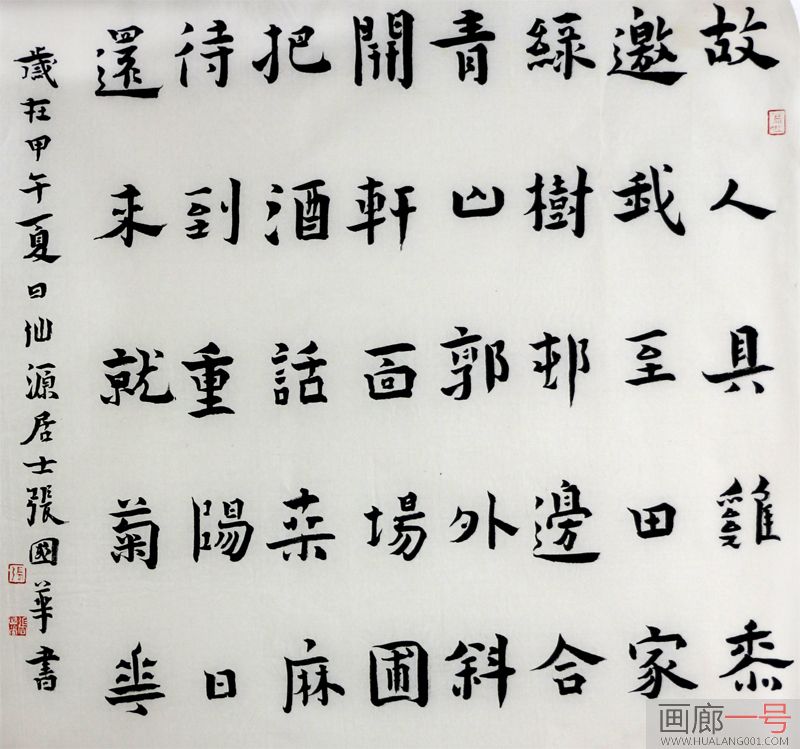 故人具雞黍
邀我至田家
綠樹邨邊合
青山郭外斜
開軒面場圃
把酒話桒麻
待到重陽日
還来就菊華
歲在甲午夏日仙源居士張國華書
画廊一号
WWW.HUALANG001.COM